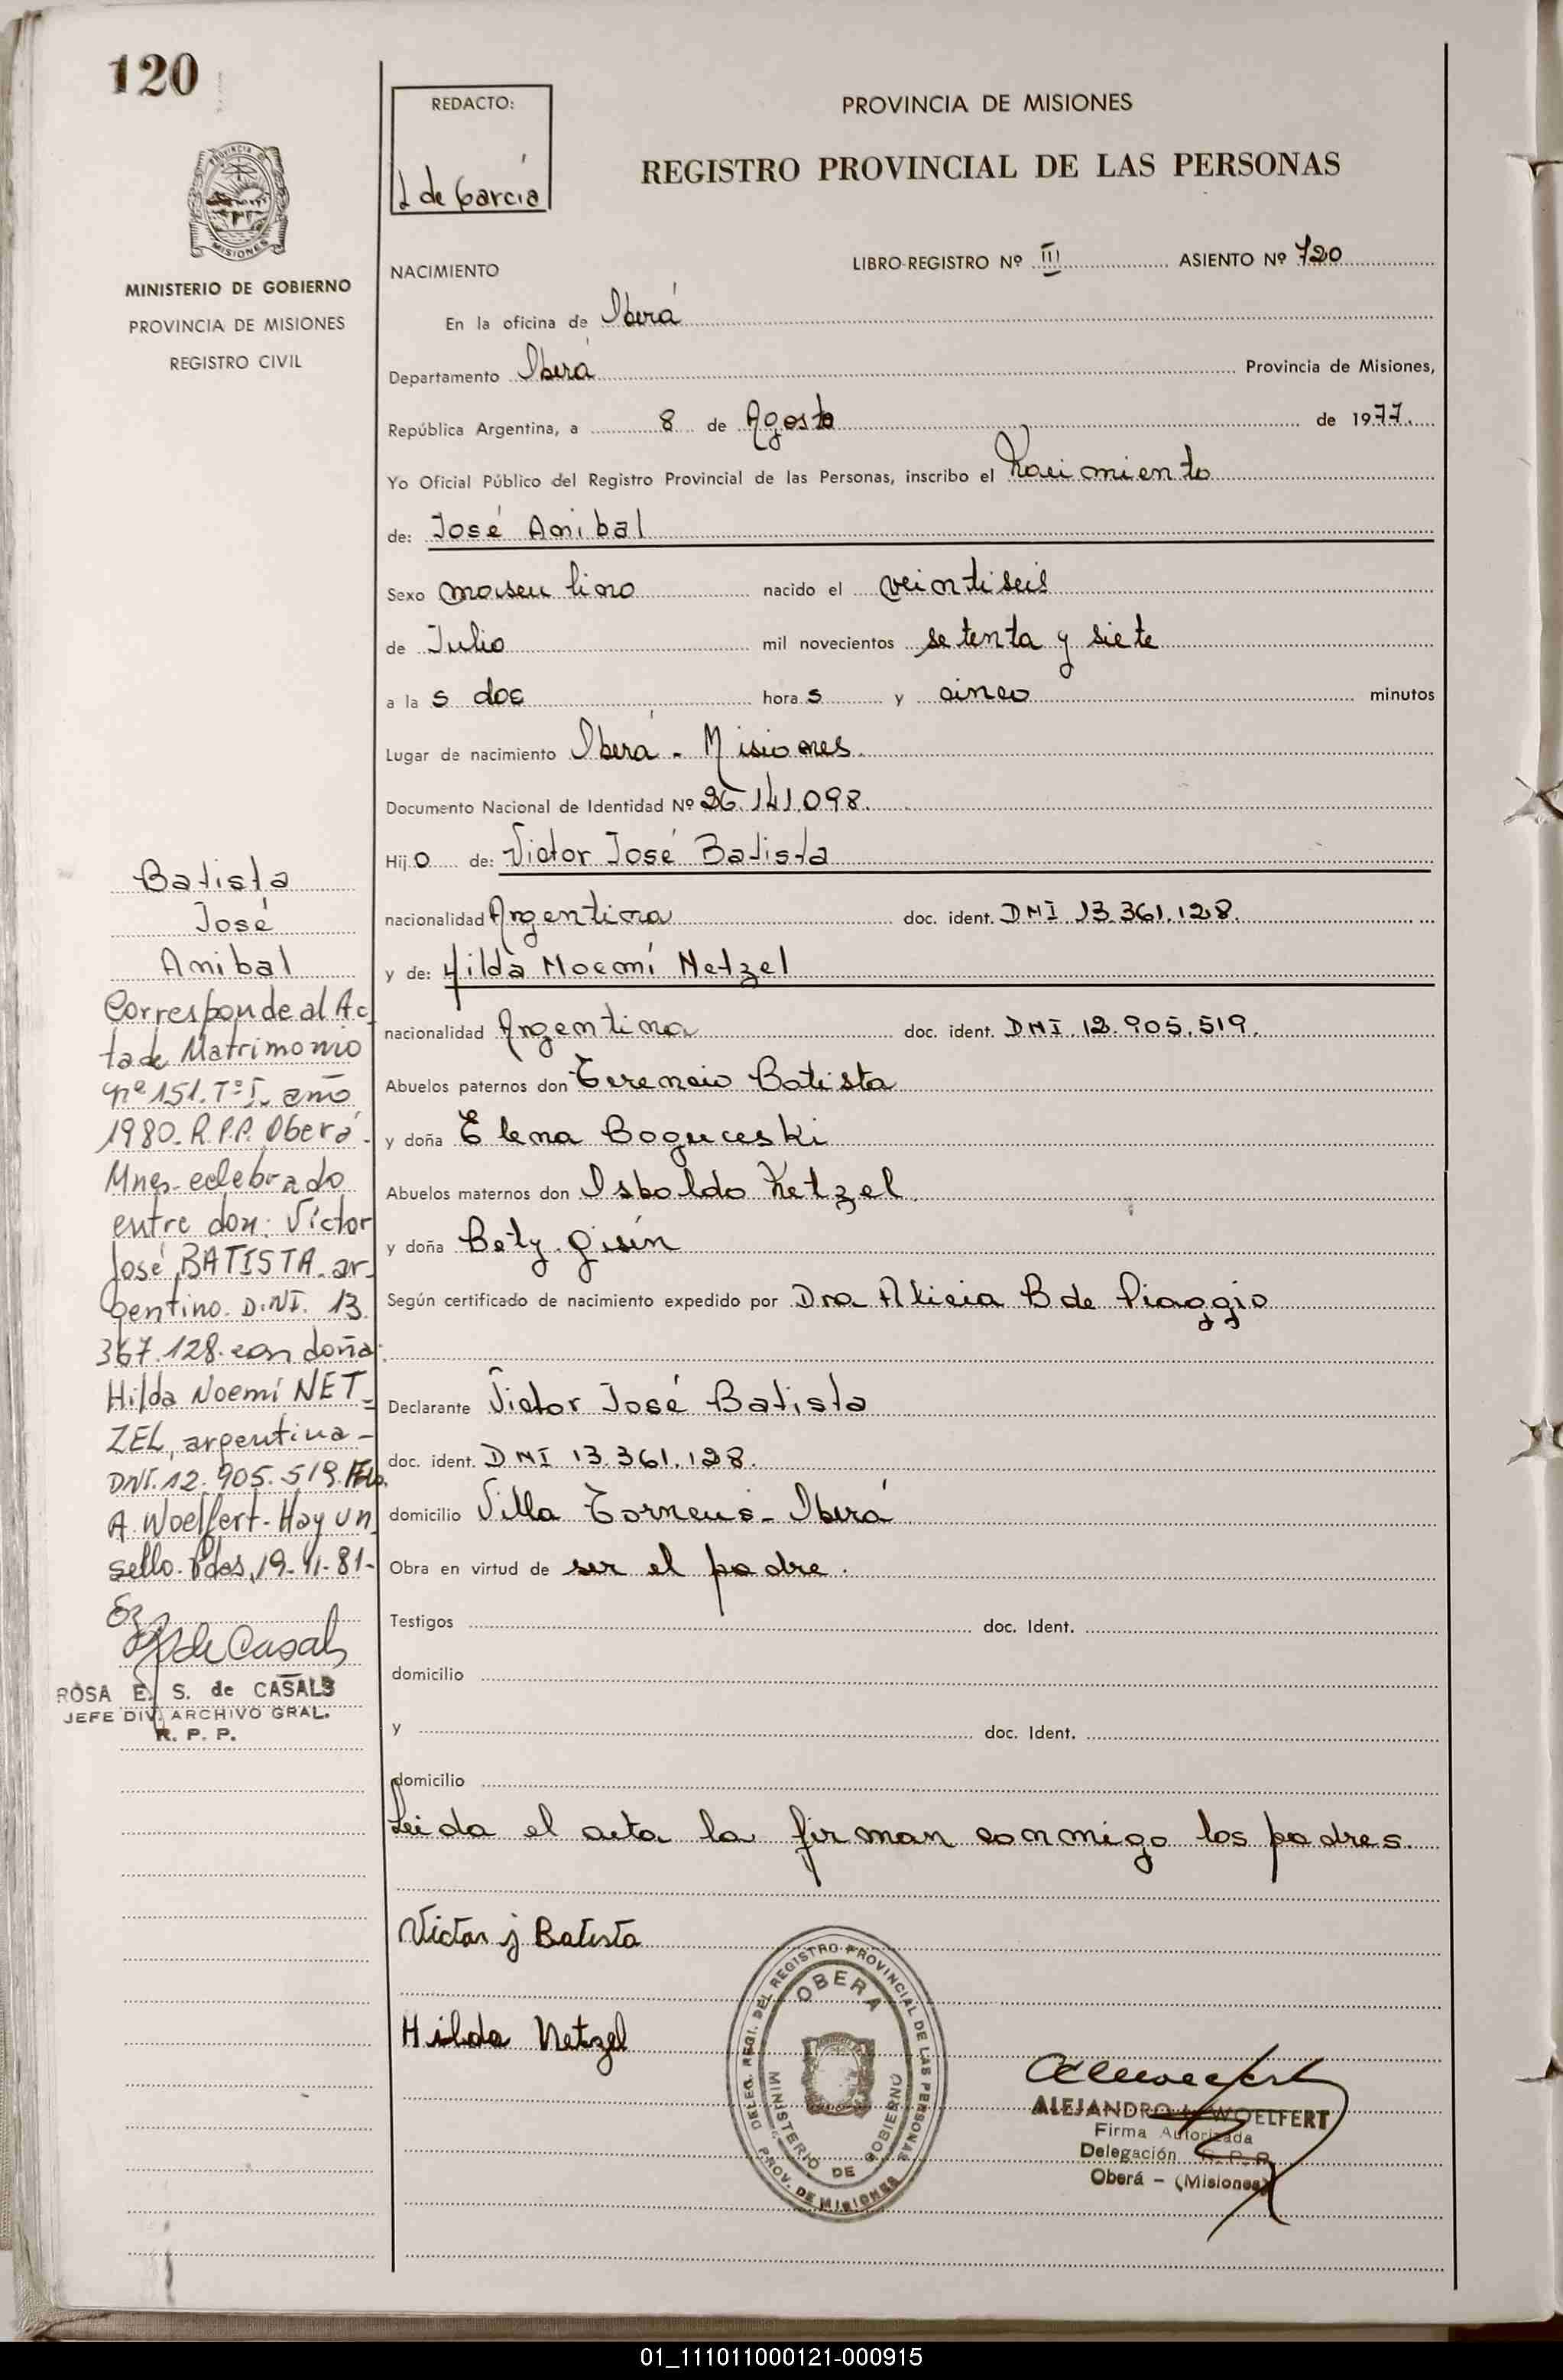 120
MINISTERIO DE GOBIERNO
PROVINCIA DE MISIONES
REGISTRO CIVIL
REDACTO:
L de Garcia
PROVINCIA DE MISIONES
REGISTRO PROVINCIAL DE LAS PERSONAS
NACIMIENTO
LIBRO-REGISTRO Nº III ASIENTO Nº 720
En la oficina de Oberá
Departamento Oberá Provincia de Misiones,
República Argentina, a 8 de Agosto de 1977.
Yo Oficial Público del Registro Provincial de las Personas, inscribo el Nacimiento
de: José Anibal
Sexo masculino nacido el veintiseis
de Julio mil novecientos setenta y siete
a las doc horas y cinco minutos
Lugar de nacimiento Oberá - Misiones.
Documento Nacional de Identidad Nº 26.141.098.
Hijo de: Victor José Batista
nacionalidad Argentina doc. ident. DNI 13.361.128.
y de: Hilda Noemí Netzel
nacionalidad Argentina doc. ident. DNI. 12.905.519.
Abuelos paternos don Terencio Batista
y doña Elena Boguceski
Abuelos maternos don Isboldo Netzel.
y doña Bety Gisin
Según certificado de nacimiento expedido por Dra Alicia B de Piaggio
Declarante Victor José Batista
doc. ident. DNI 13.361.128.
domicilio Villa Torneus - Oberá
Obra en virtud de ser el padre.
Testigos doc. Ident.
domicilio
y doc. Ident.
domicilio
Leida el acta la firman conmigo los padres.
Victor j Batista
Hilda Netzel
DELEG. REGI. DEL REGISTRO PROVINCIAL DE LAS PERSONAS
OBERA
MINISTERIO DE GOBIERNO
PROV. DE MISIONES
ALEJANDRO WOELFERT
Firma Autorizada
Delegación R. P. P.
Oberá - (Misiones)
Batista
José
Anibal
Corresponde al Ac
ta de Matrimonio
nº 151. Tº I. año
1980. R.P.P. Oberá.
Mnes. celebrado
entre don: Víctor
José BATISTA. ar-
gentino. D.N.I. 13.
367.128. con doña:
Hilda Noemí NET=
ZEL, argentina -
DNI. 12.905.519. Fdo.
A. Woelfert - Hay un
sello. Pdas, 19-11-81-
de Casals
ROSA E. S. de CASALS
JEFE DIV. ARCHIVO GRAL.
R. P. P.
01_111011000121-000915